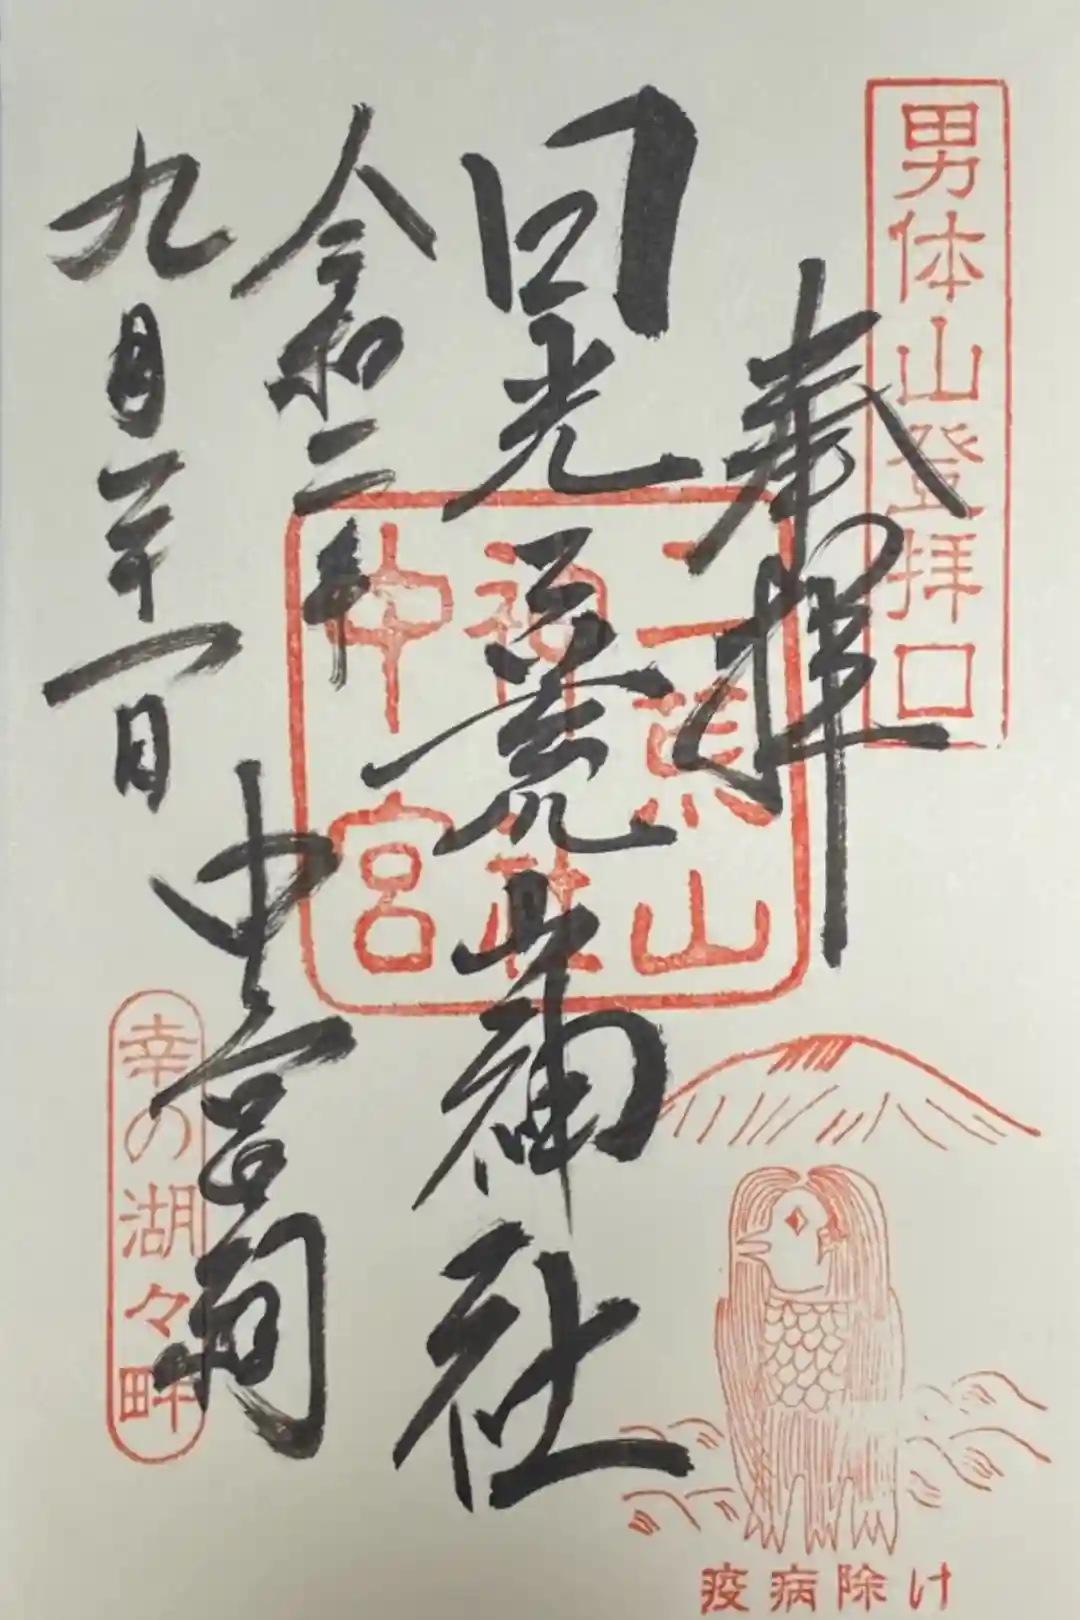 男体山登拝口
奉拝
日光二荒山神社
二荒山
神社
中宮
中宮祠
令和二年
九月二十一日
幸の湖々畔
疫病除け